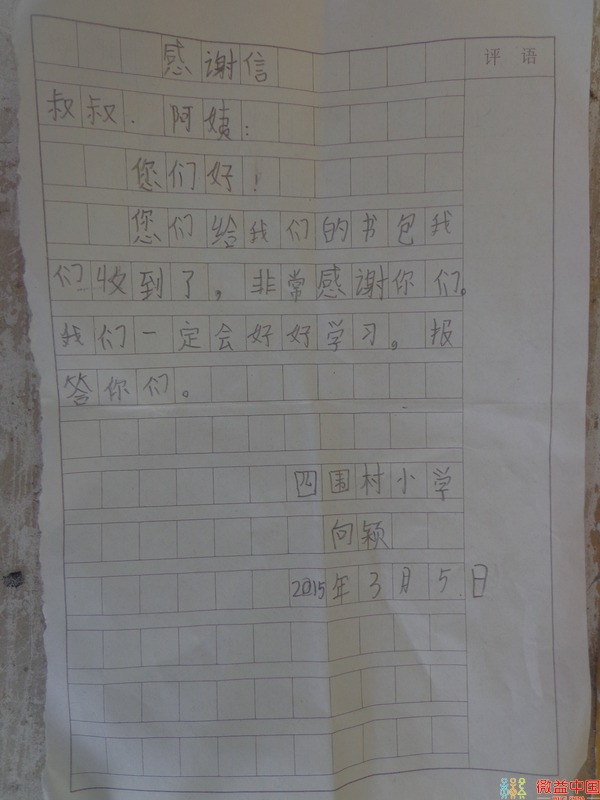 感谢信
评语
叔叔.阿姨:
您们好!
您们给我们的书包我
们收到了,非常感谢你们。
我们一定会好好学习。报
答你们。
四围村小学
向颖
2015年3月5日
微益中国